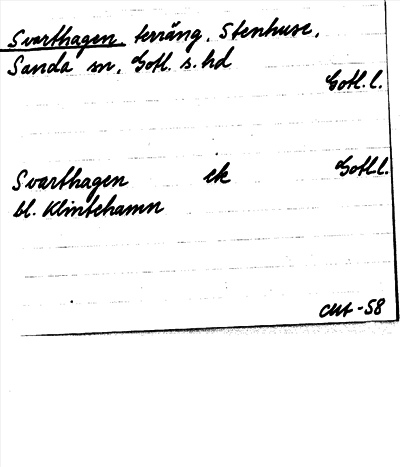 Svarthagen, terräng, Stenhuse,
Sanda sn, Gotl. s. hd
Gotl. l.
Svarthagen ek Gotl. l.
bl. Klintehamn
-58